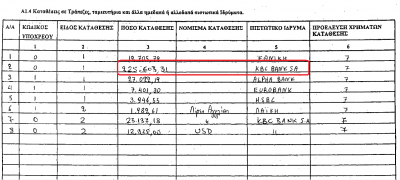 A1.4 Καταθέσεις σε Τράπεζες, ταμιευτήρια και άλλα ημεδαπά ή αλλοδαπά πιστωτικά Ιδρύματα.
Α/Α ΚΩΔΙΚΟΣ ΥΠΟΧΡΕΟΥ ΕΙΔΟΣ ΚΑΤΑΘΕΣΗΣ ΠΟΣΟ ΚΑΤΑΘΕΣΗΣ ΝΟΜΙΣΜΑ ΚΑΤΑΘΕΣΗΣ ΠΙΣΤΩΤΙΚΟ ΙΔΡΥΜΑ ΠΡΟΕΛΕΥΣΗ ΧΡΗΜΑΤΩΝ ΚΑΤΑΘΕΣΗΣ
1 2 3 4 5 6
1 0 1 7
2 0 1 225.603,31 KBC BANK S.A 7
3 1 1 ALPHA BANK 7
4 1 1 7.401,30 EUROBANK 7
5 1 1 HSBC 7
6 1 2 ΛΑΪΚΗ 7
7 0 2 23.132,18 KBC BANK S.A 7
8 0 2 USD 11 7